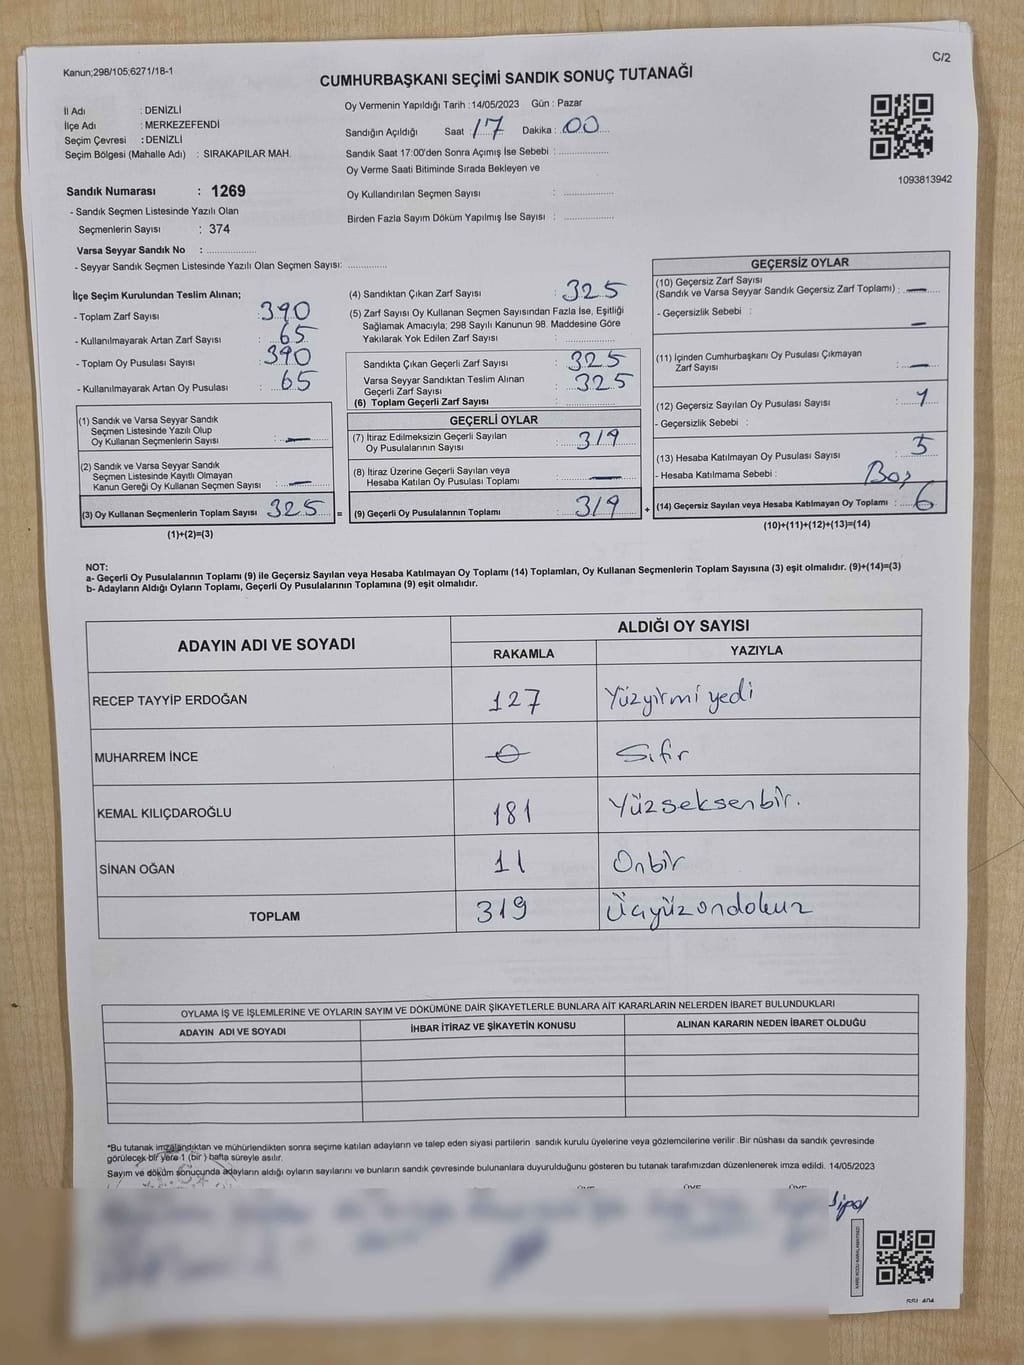 Kanun;298/105;6271/18-1
C/2
CUMHURBAŞKANI SEÇİMİ SANDIK SONUÇ TUTANAĞI
İl Adı : DENİZLİ
İlçe Adı : MERKEZEFENDİ
Seçim Çevresi : DENİZLİ
Seçim Bölgesi (Mahalle Adı) : SIRAKAPILAR MAH.
Sandık Numarası : 1269
- Sandık Seçmen Listesinde Yazılı Olan
Seçmenlerin Sayısı : 374
Varsa Seyyar Sandık No : ................
- Seyyar Sandık Seçmen Listesinde Yazılı Olan Seçmen Sayısı: .............
Oy Vermenin Yapıldığı Tarih : 14/05/2023 Gün : Pazar
Sandığın Açıldığı Saat : 17 Dakika : 00
Sandık Saat 17:00'den Sonra Açımış İse Sebebi : ................
Oy Verme Saati Bitiminde Sırada Bekleyen ve
Oy Kullandırılan Seçmen Sayısı : ................
Birden Fazla Sayım Döküm Yapılmış İse Sayısı : ................
1093813942
İlçe Seçim Kurulundan Teslim Alınan;
- Toplam Zarf Sayısı : 390
- Kullanılmayarak Artan Zarf Sayısı : 65
- Toplam Oy Pusulası Sayısı : 390
- Kullanılmayarak Artan Oy Pusulası : 65
(1) Sandık ve Varsa Seyyar Sandık
Seçmen Listesinde Yazılı Olup
Oy Kullanan Seçmenlerin Sayısı : —
(2) Sandık ve Varsa Seyyar Sandık
Seçmen Listesinde Kayıtlı Olmayan
Kanun Gereği Oy Kullanan Seçmen Sayısı : —
(3) Oy Kullanan Seçmenlerin Toplam Sayısı : 325 =
(1)+(2)=(3)
(4) Sandıktan Çıkan Zarf Sayısı : 325
(5) Zarf Sayısı Oy Kullanan Seçmen Sayısından Fazla İse, Eşitliği
Sağlamak Amacıyla; 298 Sayılı Kanunun 98. Maddesine Göre
Yakılarak Yok Edilen Zarf Sayısı : ................
Sandıkta Çıkan Geçerli Zarf Sayısı : 325
Varsa Seyyar Sandıktan Teslim Alınan
Geçerli Zarf Sayısı : 325
(6) Toplam Geçerli Zarf Sayısı : ................
GEÇERLİ OYLAR
(7) İtiraz Edilmeksizin Geçerli Sayılan
Oy Pusulasının Sayısı : 319
(8) İtiraz Üzerine Geçerli Sayılan veya
Hesaba Katılan Oy Pusulası Toplamı : —
(9) Geçerli Oy Pusulalarının Toplamı : 319 +
GEÇERSİZ OYLAR
(10) Geçersiz Zarf Sayısı
(Sandık ve Varsa Seyyar Sandık Geçersiz Zarf Toplamı) : —
- Geçersizlik Sebebi : —
(11) İçinden Cumhurbaşkanı Oy Pusulası Çıkmayan
Zarf Sayısı : —
(12) Geçersiz Sayılan Oy Pusulası Sayısı : 1
- Geçersizlik Sebebi :
(13) Hesaba Katılmayan Oy Pusulası Sayısı : 5
- Hesaba Katılmama Sebebi : Boş
(14) Geçersiz Sayılan veya Hesaba Katılmayan Oy Toplamı : 6
(10)+(11)+(12)+(13)=(14)
NOT:
a- Geçerli Oy Pusulalarının Toplamı (9) ile Geçersiz Sayılan veya Hesaba Katılmayan Oy Toplamı (14) Toplamları, Oy Kullanan Seçmenlerin Toplam Sayısına (3) eşit olmalıdır. (9)+(14)=(3)
b- Adayların Aldığı Oyların Toplamı, Geçerli Oy Pusulalarının Toplamına (9) eşit olmalıdır.
ADAYIN ADI VE SOYADI
ALDIĞI OY SAYISI
RAKAMLA YAZIYLA
RECEP TAYYİP ERDOĞAN 127 Yüzyirmi yedi
MUHARREM İNCE 0 Sıfır
KEMAL KILIÇDAROĞLU 181 Yüzseksenbir.
SİNAN OĞAN 11 Onbir
TOPLAM 319 Üçyüzondokuz
OYLAMA İŞ VE İŞLEMLERİNE VE OYLARIN SAYIM VE DÖKÜMÜNE DAİR ŞİKAYETLERLE BUNLARA AİT KARARLARIN NELERDEN İBARET BULUNDUKLARI
ADAYIN ADI VE SOYADI İHBAR İTİRAZ VE ŞİKAYETİN KONUSU ALINAN KARARIN NEDEN İBARET OLDUĞU
*Bu tutanak imzalandıktan ve mühürlendikten sonra seçime katılan adayların ve talep eden siyasi partilerin sandık kurulu üyelerine veya gözlemcilerine verilir .Bir nüshası da sandık çevresinde
görülecek bir yere 1 (bir ) hafta süreyle asılır.
Sayım ve döküm sonucunda adayların aldığı oyların sayılarını ve bunların sandık çevresinde bulunanlara duyurulduğunu gösteren bu tutanak tarafımızdan düzenlenerek imza edildi. 14/05/2023
ÜYE ÜYE ÜYE